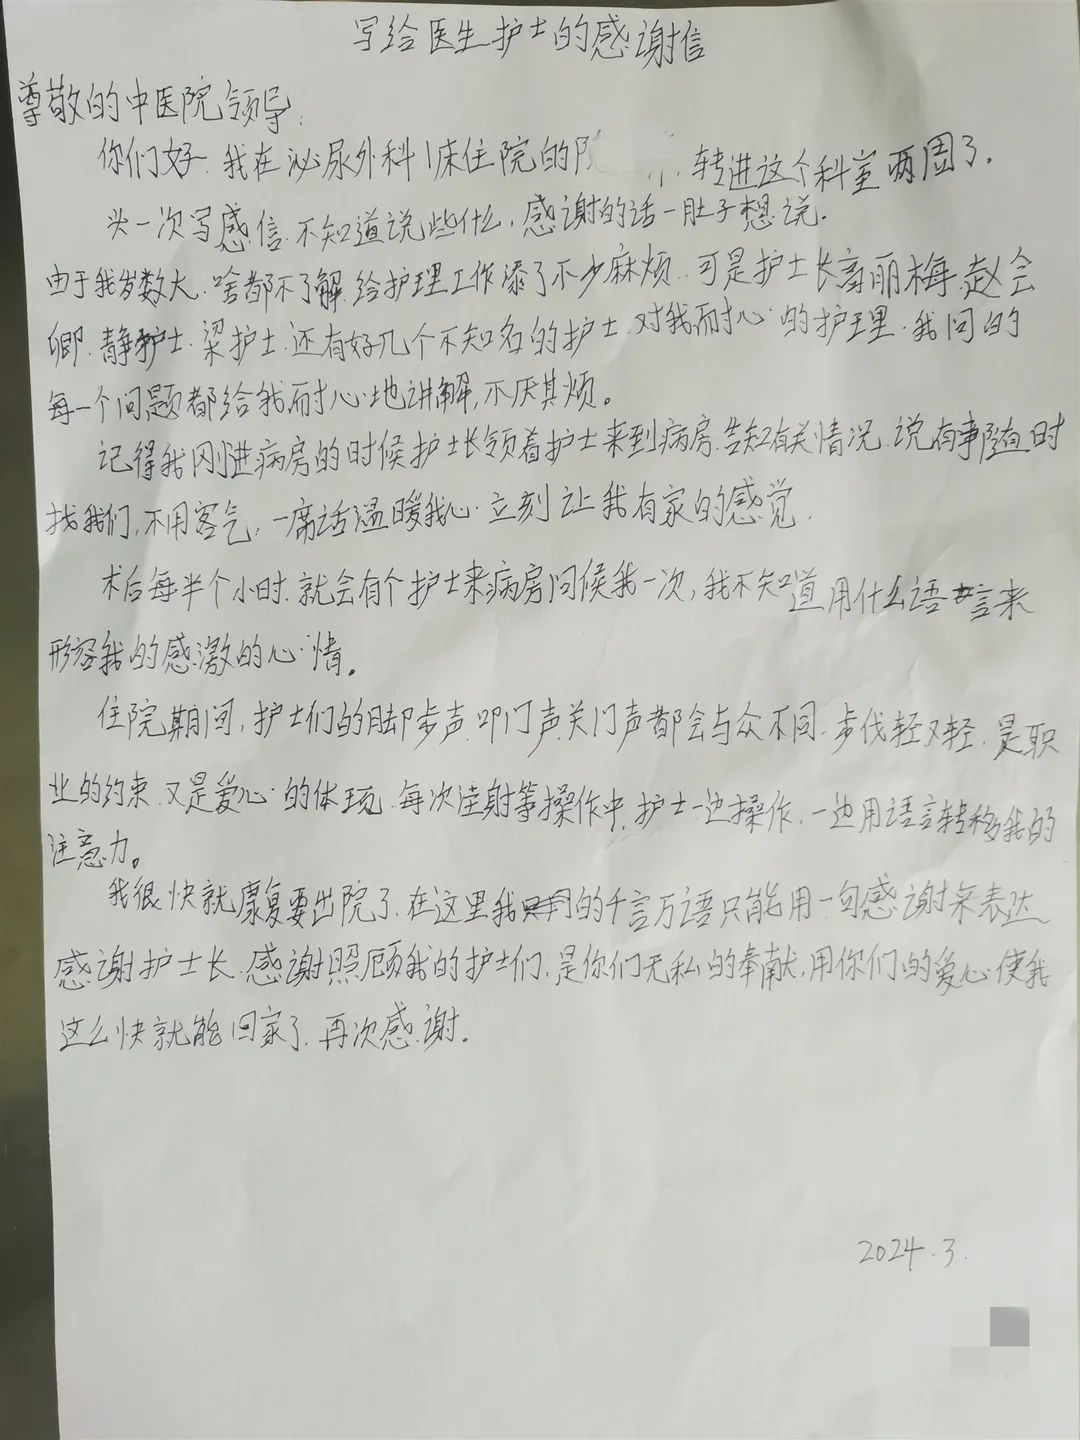 写给医生护士的感谢信
尊敬的中医院领导:
你们好.我在泌尿外科1床住院的 .转进这个科室两周了.
头一次写感信.不知道说些什么,感谢的话一肚子想说.
由于我岁数大.啥都不了解.给护理工作添了不少麻烦.可是护士长高丽梅.赵会
卿.静护士.梁护士.还有好几个不知名的护士.对我耐心的护理.我问的
每一个问题都给我耐心地讲解,不厌其烦。
记得我刚进病房的时候护士长领着护士来到病房.告知有关情况.说有事随时
找我们,不用客气,一席话温暖我心.立刻让我有家的感觉.
术后每半个小时.就会有个护士来病房问候我一次,我不知道用什么语言来
形容我的感激的心情。
住院期间,护士们的脚步声.叩门声.关门声都会与众不同.步伐轻又轻.是职
业的约束.又是爱心的体现.每次注射等操作中,护士一边操作.一边用语言转移我的
注意力。
我很快就康复要出院了.在这里我的千言万语只能用一句感谢来表达
感谢护士长.感谢照顾我的护士们,是你们无私的奉献,用你们的爱心使我
这么快就能回家了.再次感谢。
2024.3.